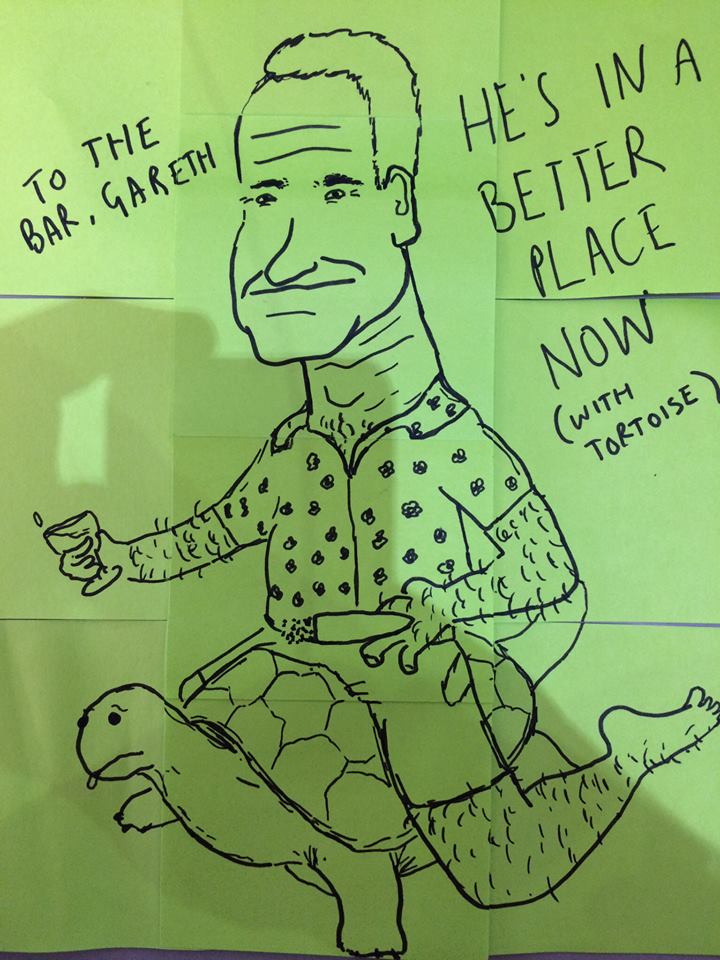 TO THE
BAR, GARETH
HE'S IN A
BETTER
PLACE
NOW
(WITH
TORTOISE)